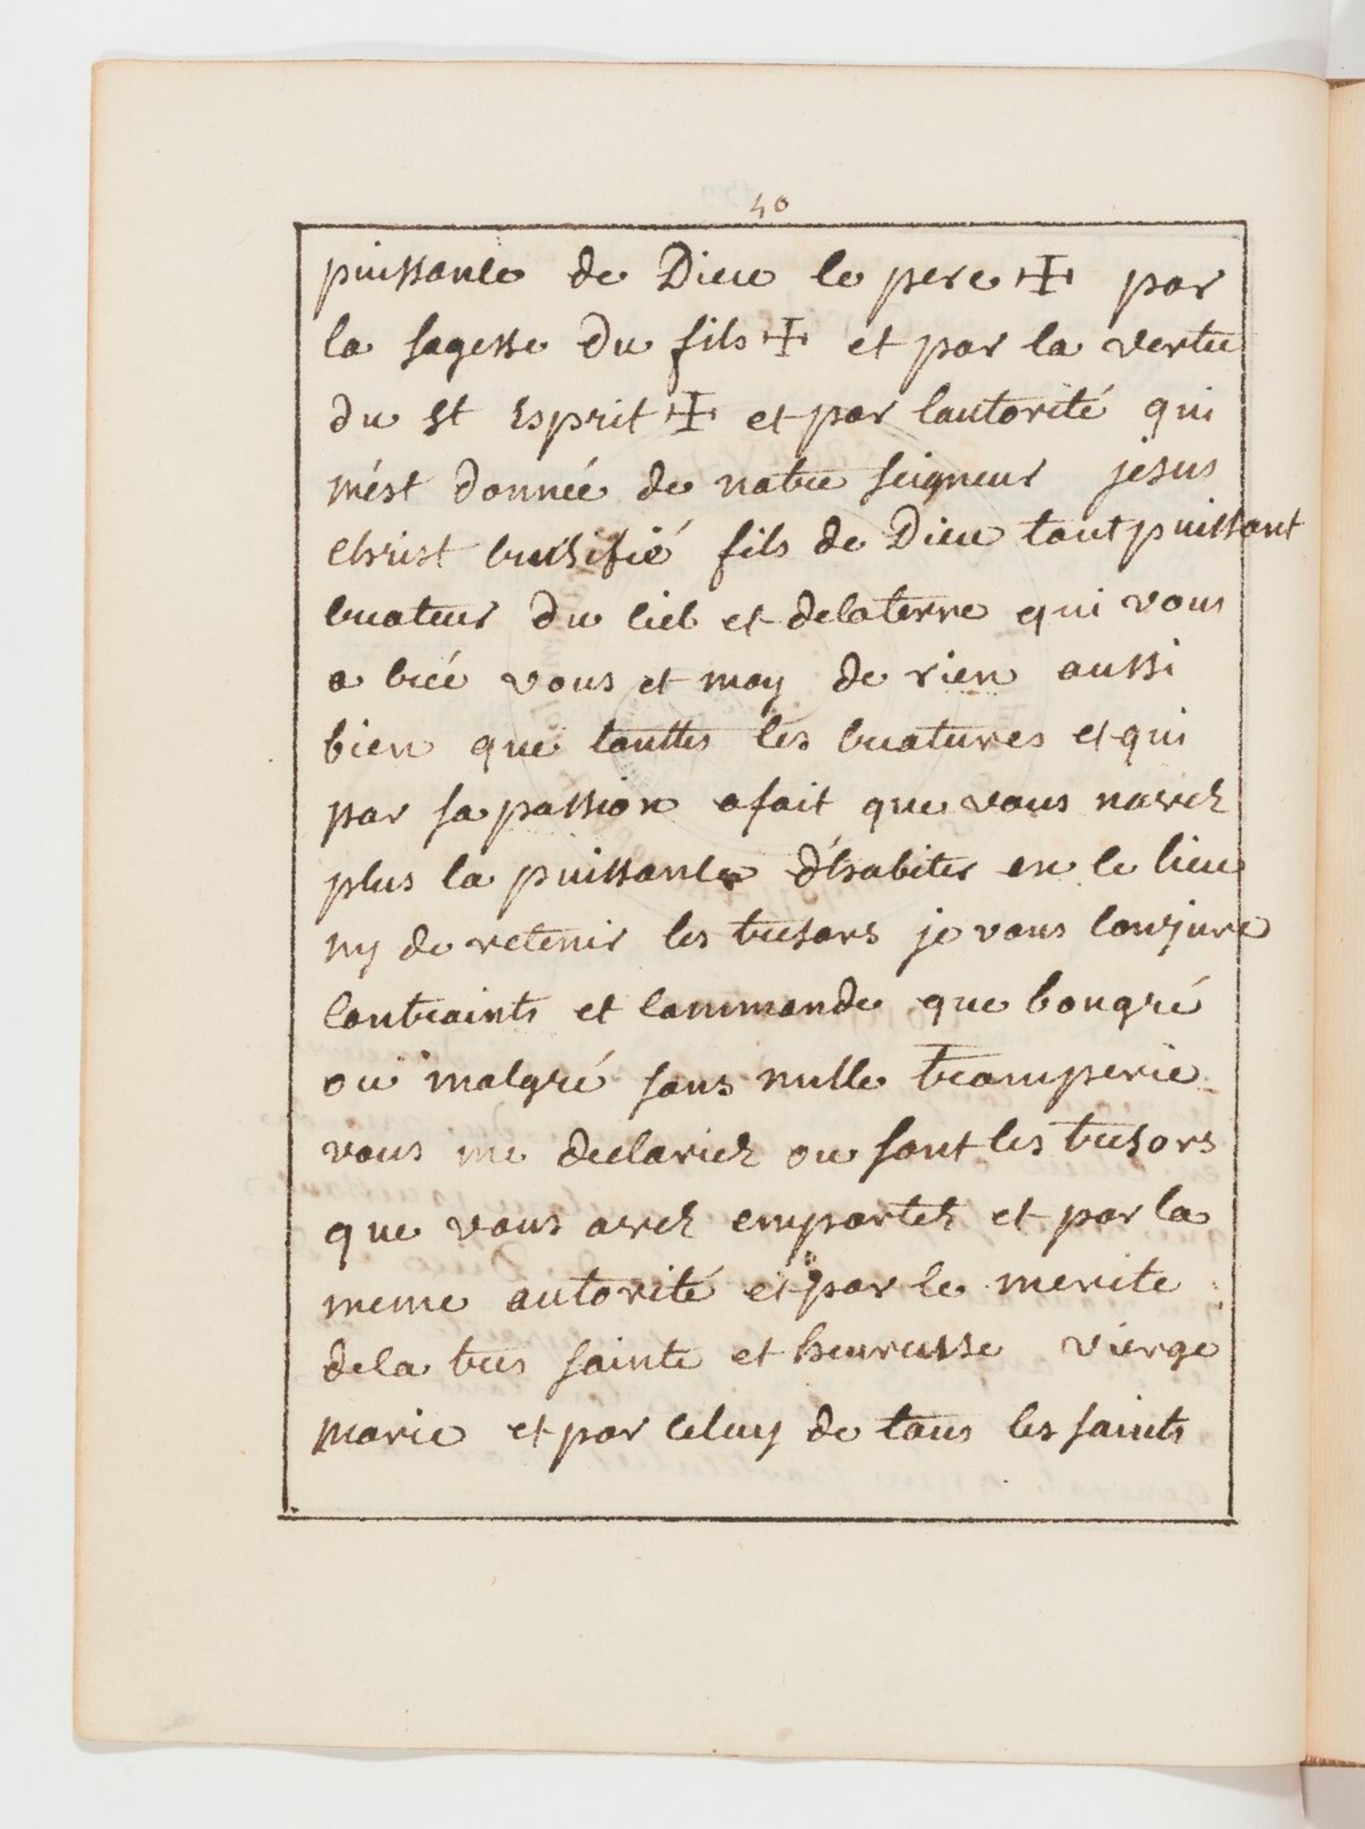 40
puissance de Dieu le pere ✠ par
la sagesse du fils ✠ et par la vertu
du st esprit ✠ et par lautorité qui
m'ést donnée de notre seigneur jesus
christ crusifié fils de Dieu tout puissant
createur du ciel et delaterre qui vous
a créé vous et moy de rien aussi
bien que touttes les creatures et qui
par sa passion a fait que vous navez
plus la puissance d'habiter en ce lieu
ny de retenir les tresors je vous conjure
contraints et commande que bongré
ou malgré sans nulle tromperie
vous me declariez ou sont les tresors
que vous avez emportez et par la
meme autorité et par le merite
dela tres sainte et heureusse vierge
marie et par celuy de tous les saints